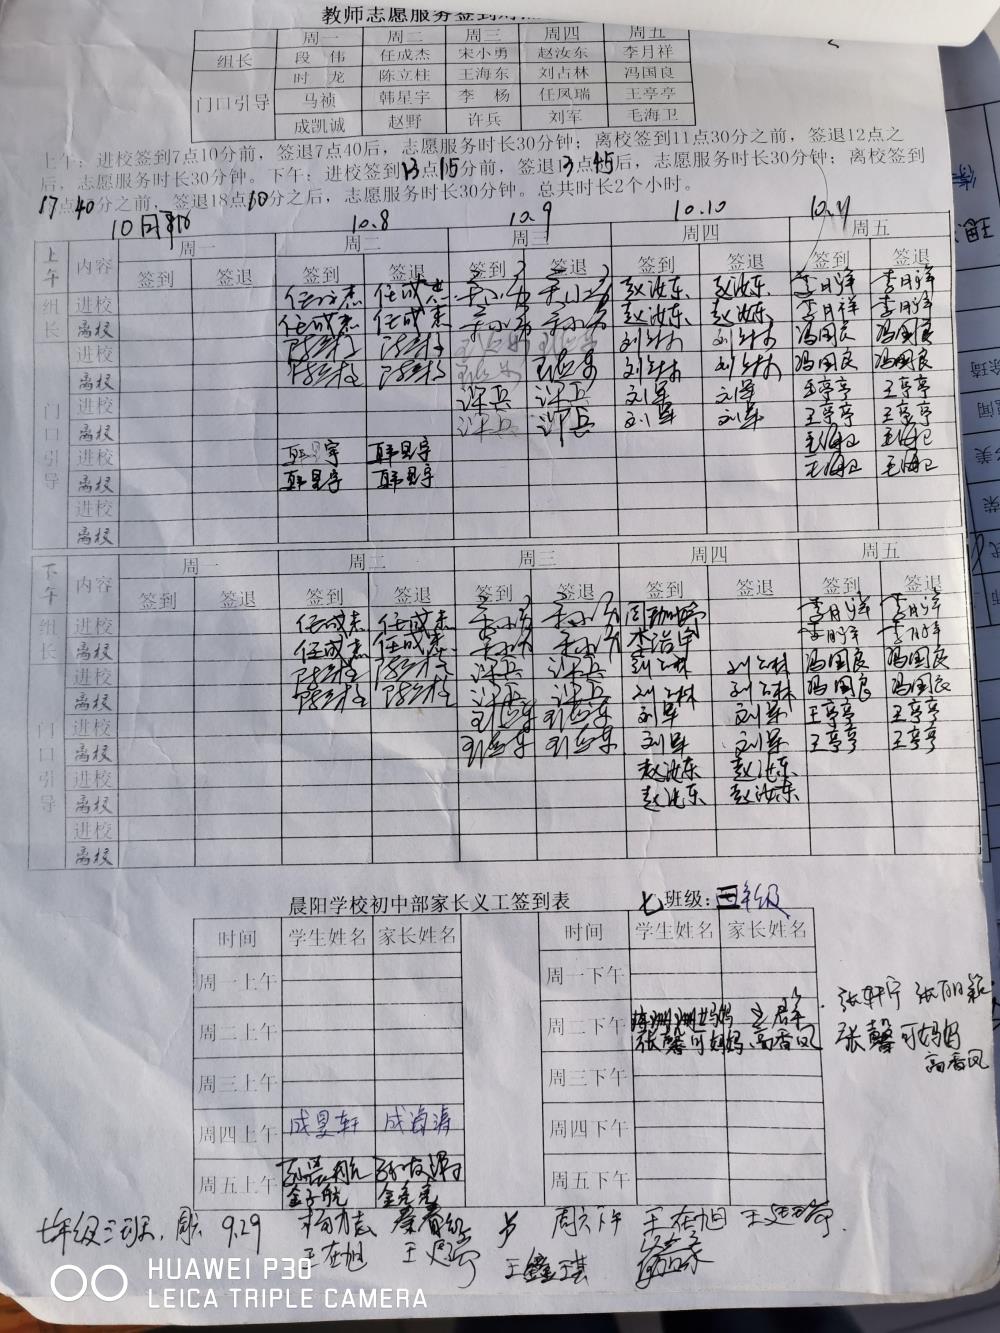 教师志愿服务签到
周一 周二 周三 周四 周五
组长 段伟 任成杰 宋小勇 赵汝东 李月祥
门口引导 时龙 陈立柱 王海东 刘占林 冯国良
马祯 韩星宇 李杨 任凤瑞 王亭亭
成凯诚 赵野 许兵 刘军 毛海卫
上午：进校签到7点10分前，签退7点40后，志愿服务时长30分钟；离校签到11点30分之前，签退12点之
后，志愿服务时长30分钟。下午：进校签到13点15分前，签退13点45后，志愿服务时长30分钟；离校签到
17点40分之前，签退18点10分之后，志愿服务时长30分钟。总共时长2个小时。
10月 10.8 10.9 10.10 10.11
上午 内容 周一 周二 周三 周四 周五
签到 签退 签到 签退 签到 签退 签到 签退 签到 签退
组长 进校 任成杰 任成杰 宋小勇 宋小勇 赵汝东 赵汝东 李月祥 李月祥
离校 任成杰 任成杰 宋小勇 宋小勇 赵汝东 赵汝东 李月祥 李月祥
门口引导 进校 陈立柱 陈立柱 王海东 王海东 刘占林 刘占林 冯国良 冯国良
离校 陈立柱 陈立柱 王海东 王海东 刘占林 刘占林 冯国良 冯国良
进校 许兵 许兵 刘军 刘军 王亭亭 王亭亭
离校 许兵 许兵 刘军 刘军 王亭亭 王亭亭
进校 韩星宇 韩星宇 毛海卫 毛海卫
离校 韩星宇 韩星宇 毛海卫 毛海卫
进校
离校
下午 内容 周一 周二 周三 周四 周五
签到 签退 签到 签退 签到 签退 签到 签退 签到 签退
组长 进校 任成杰 任成杰 宋小勇 宋小勇 李月祥 李月祥
离校 任成杰 任成杰 宋小勇 宋小勇 李月祥 李月祥
门口引导 进校 陈立柱 陈立柱 许兵 许兵 刘占林 刘占林 冯国良 冯国良
离校 陈立柱 陈立柱 许兵 许兵 刘占林 刘占林 冯国良 冯国良
进校 王海东 王海东 刘军 刘军 王亭亭 王亭亭
离校 王海东 王海东 刘军 刘军 王亭亭 王亭亭
进校 赵汝东 赵汝东
离校 赵汝东 赵汝东
进校
离校
晨阳学校初中部家长义工签到表 七 班级： 年级
时间 学生姓名 家长姓名 时间 学生姓名 家长姓名
周一上午 周一下午
周二上午 周二下午
张馨可妈妈 高香凤
张轩宁
张馨可妈妈
高香凤
周三上午 周三下午
周四上午 成昱轩 周四下午
周五上午 周五下午
金子航 金亮亮
七年级三班 周六 9.29 周六下午 王在旭
王在旭 王鑫琪
HUAWEI P30
LEICA TRIPLE CAMERA